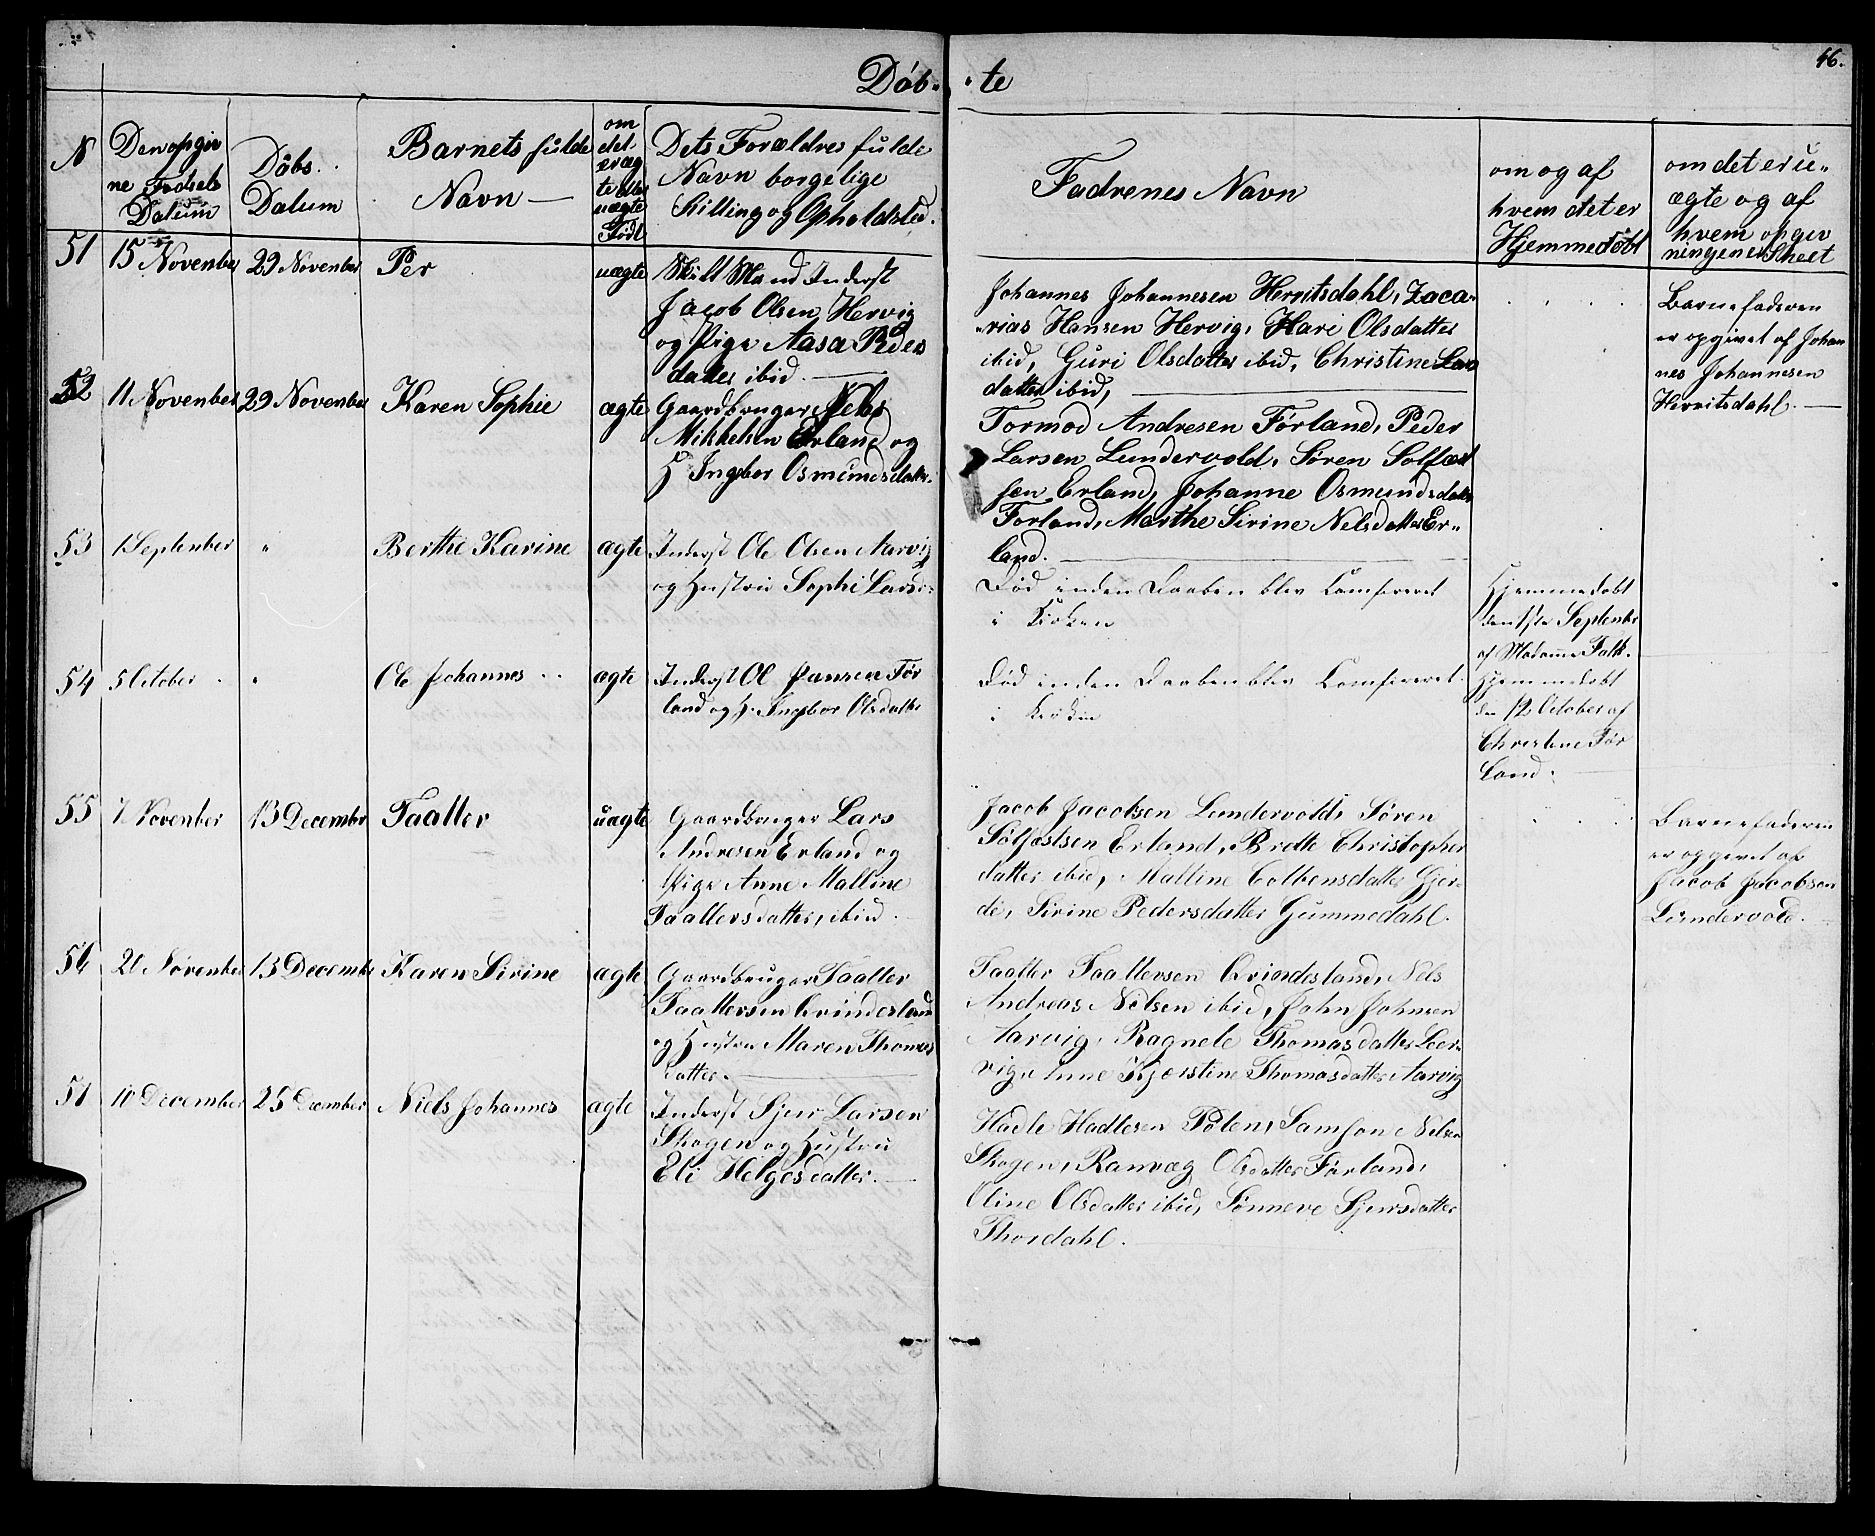 46.
Döb- -te
N
Den opgiv
ne Födsels
Datum
Döbs.
Datum
Barnets fulde
Navn
om
det
er æg
te eller
uægte
Födt
Dets Forældres fulde
Navn borgelige
Stilling og Opholdsted.
Fadrenes Navn
om og af
hvem det er
Hjemmedöbt
om det er u-
ægte og af
hvem opgiv
ningen er Skeet
51
15 November
29 November
Per
uægte
Inderst
Jacob Olsen Hervig
og Pige Aasa Peders
datter ibid.
Johannes Johannesen Hervitsdahl, Zaca-
-rias Hansen Hervig, Kari Olsdatter
ibid, Guri Olsdatter ibid, Christine Lars
datter ibid,
Barnefaderen
er opgivet af Johan
nes Johannesen
Hervitsdahl.
52
11 November
29 November
Karen Sophie
ægte
Gaardbruger Nels
Mikkelsen Erland og
H Ingebor Osmundsdatter.
Tormod Andresen Förland, Peder
Larsen Lundervold, Sören Solfæst
sen Erland, Johanne Osmundsdatter
Förland, Marthe Sirine Nelsdatter Er-
land.
53
1 September
"
Berthe Karine
ægte
Inderst Ole Olsen Aarvig
og Hustru Sophi Larsd.
Död inden Daaben blev Comfireret
i Kirken
Hjemmedöbt
den 1ste September
af Madame Falk.
54
5 October
"
Ole Johannes
ægte
Inderst Ol Jansen För
land og H. Ingebor Olsdatter
Död inden Daaben blev Comfireret
i Kirken
Hjemmedöbt
den 12 October af
Christine För
land.
55
7 November
13 December
Taaller
uægte
Gaardbruger Lars
Andresen Erland og
Pige Anne Malline
Taallersdatter, ibid.
Jacob Jacobsen Lundervold, Sören
Sölfæstsen Erland, Brette Christopher
datter ibid, Malline Colbensdatter Gjer-
de, Sirine Pedersdatter Gummedahl.
Barnefaderen
er opgivet af
Jacob Jacobsen
Lundervold.
56
20 November
13 December
Karen Sirine
ægte
Gaardbruger Taaller
Taallersen Qvindesland
og Hustru Maren Thomas
datter.
Taaller Taallersen Qvindesland, Nels
Andreas Nelsen ibid, John Johnsen
Aarvig, Ragnele Thomasdatter Leer-
vig, Anne Kjerstine Thomasdatter Aarvig
57
10 December
25 December
Niels Johannes
ægte
Inderst Sjur Larsen
Skogen og Hustru
Eli Helgesdatter.
Hadle Hadlesen Tölen, Samson Nelsen
Skogen, Ranvæg Olsdatter Förland,
Oline Olsdatter ibid, Sönneve Sjursdatter
Thordahl.